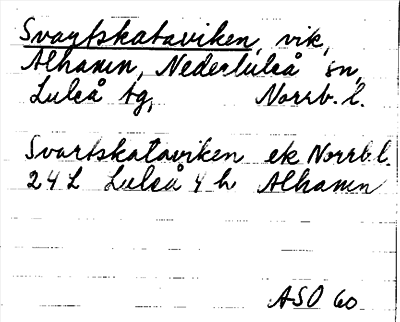 Svartskataviken, vik,
Alhamn, Nederluleå sn,
Luleå tg, Norrb. l.
Svartskataviken ek Norrb l.
24 L Luleå 4 h Alhamn
ASO 60